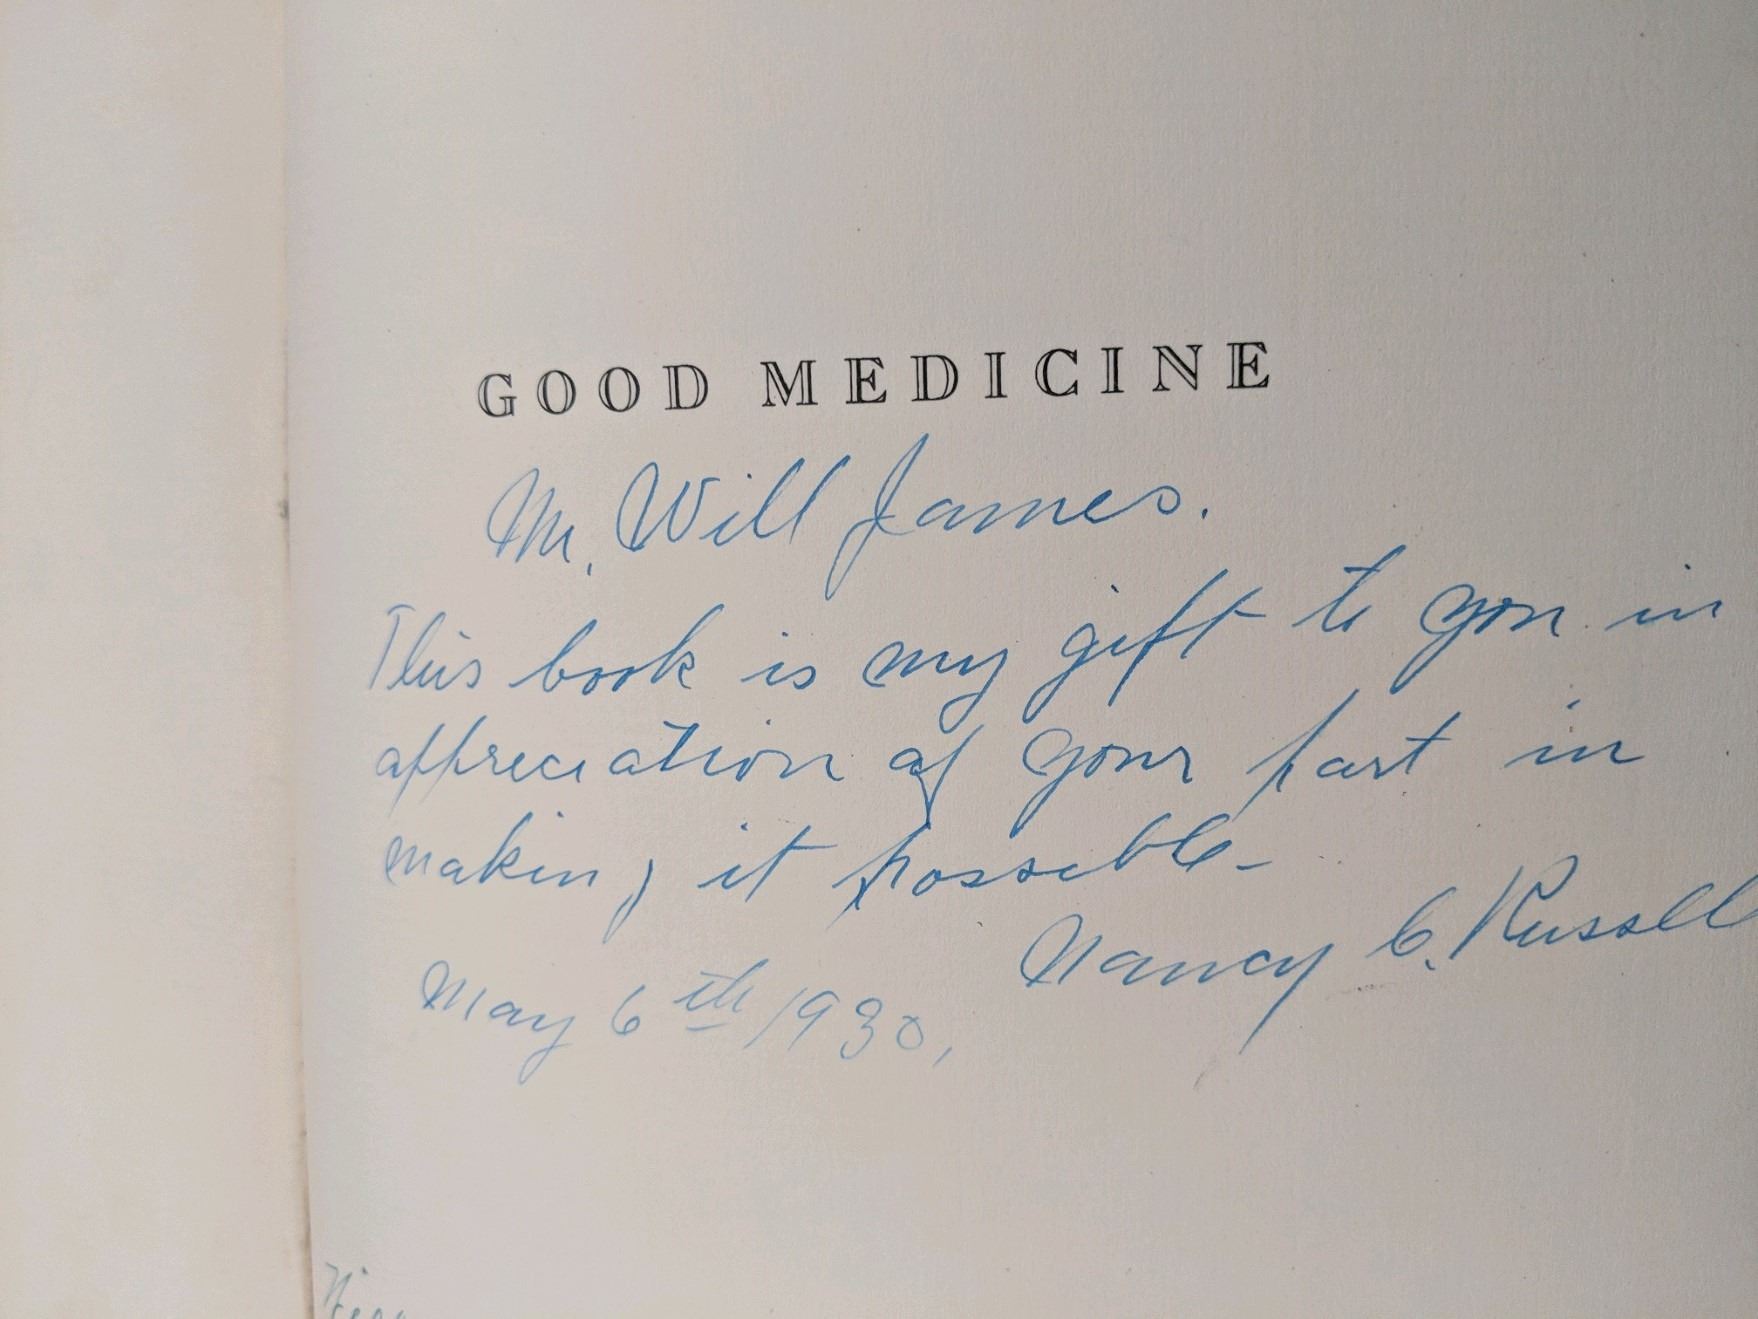 GOOD MEDICINE
Mr. Will James.
This book is my gift to you in
appreciation of your part in
making it possible-
Nancy C. Russell
May 6th 1930.